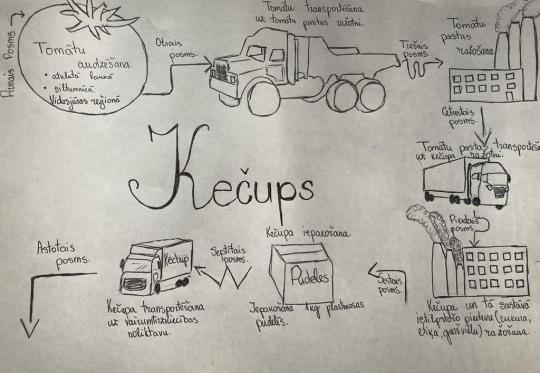 Pirmais posms
Tomātu
audzēšana
• atklātā laukā
• siltumnīcā
Vidusjūras reģionā
Otrais
posms.
Tomātu transportēšana
uz tomātu pastas ražotni.
Trešais
posms.
Tomātu
pastas
ražošana
Ceturtais
posms.
Tomātu pastas transportēša
uz kečupa ražotni.
Piektais
posms
Kečupa un tā sastāvā
ietilpstošo piedevu (cukura,
etiķa, garšvielu) ražošana.
Sestais
posms.
Kečupa iepakošana.
Pudeles
Iepakošana 1kg plastmasas
pudelēs.
Septītais
posms.
Ketchup
Kečupa transportēšana
uz vairumtirdzniecības
noliktavu.
Astotais
posms.
Kečups